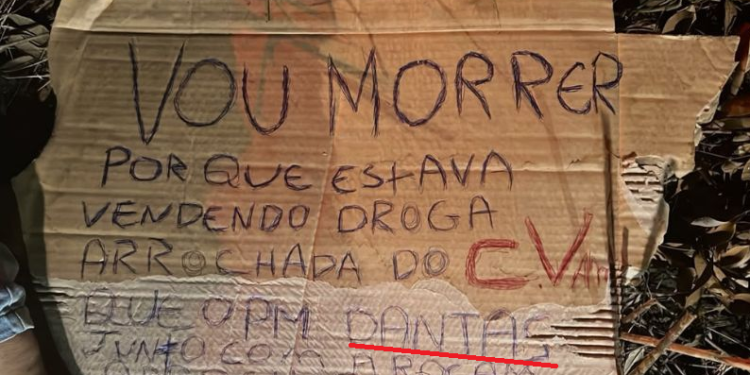 VOU MORRER
POR QUE ESTAVA
VENDENDO DROGA
ARROCHADA DO C.V
QUE O PM DANTAS
JUNTO COM A ROCAM